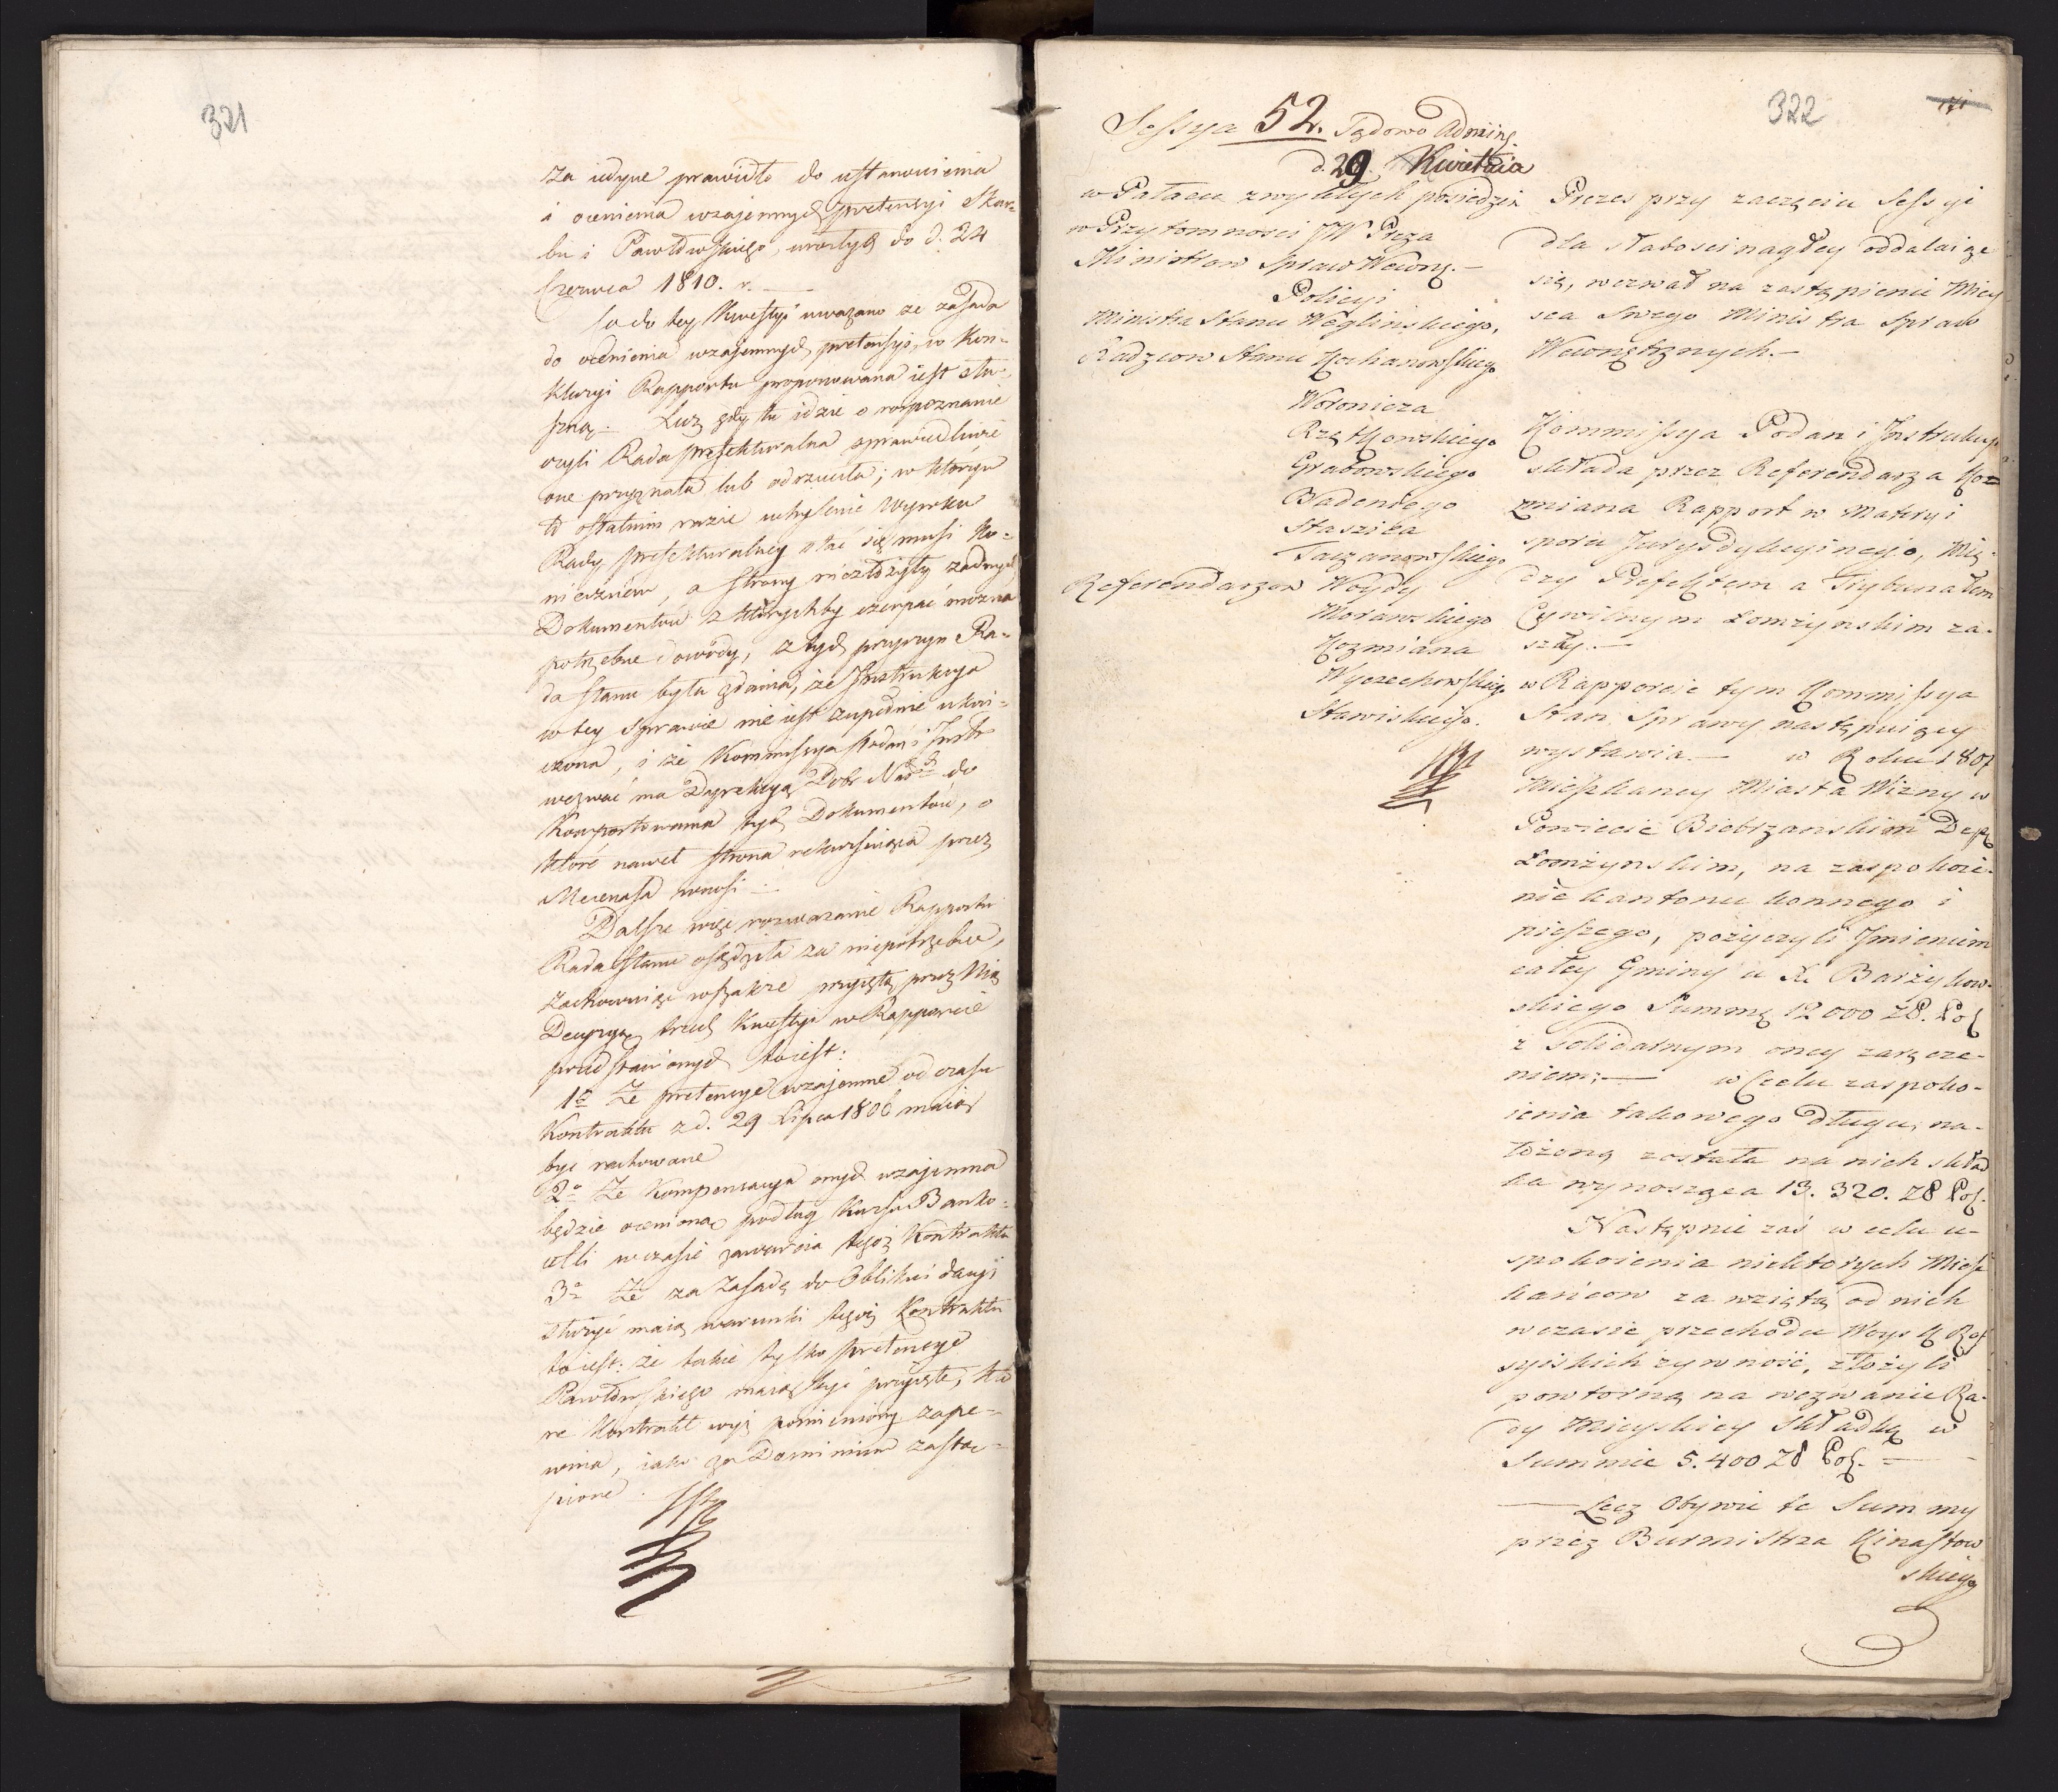 321
za iedyne prawidło do ustanowienia
i ocenienia wzajemnych pretensyi Skar-
bu i Pawłowskiego, urosłych do d. 24
Czerwca 1810. r. —
Co do tey Kwestyi uważano że zasada
do ocenienia wzajemnych pretensyi, w Kon-
kluzyi Rapportu proponowana iest słu-
szną. Lecz gdy tu idzie o rozpoznanie
czyli Rada prefekturalna sprawiedliwie
one przyznała lub odrzuciła; w którym
to ostatnim razie uchylenie Wyroku
Rady prefekturalney stać się musi ko-
niecznem, a strony niezłożyły żadnych
Dokumentów z którychby czerpać można
potrzebne dowody, z tych przyczyn Ra-
da Stanu była zdania, że Instrukcya
w tey sprawie nie iest zupełnie ukoń-
czona, i że Kommissya Podań i Instr
wezwać ma Dyrekcyą Dobr Nar do
komportowania tych Dokumentów, o
które nawet strona rekursuiąca przez
Mecenasa wnosi —
Dalsze więc rozważanie Rapportu
Rada Stanu osądziła za niepotrzebne,
zachowuiąc wszakże przyiętą przez Nią
Decyzyą trzech Kwestyi w Rapporcie
przedstawionych to iest:
1o Że pretensye wzajemne od czasu
Kontraktu z d. 29 Lipca 1806 maią
być rachowane
2o Że Kompensacya onych wzajemna
będzie oceniona podług kursu Banko-
cetli w czasie zawarcia tegoż Kontraktu
3o Że za zasadę do Obliku i dangi
służyć maią warunki tegoż Kontraktu
to iest: że takie tylko pretensye
Pawłowskiego maią być przyięte, któ
re Kontrakt wyż pomieniony zape-
wnia, iako za Dominium zastą-
pione.
322
Sessya 52. Sądowo Admin
d. 29 Kwietnia
w Pałacu zwykłych posiedzeń
w Przytomności JW Preza
Ministrow Spraw Wewnę. —
Policyi
Ministra Stanu Węglinskiego,
Radzcow Stanu Kochanowskiego
Woronicza
Rzętkowskiego
Grabowskiego
Badeniego
Staszica
Taczanowskiego
Referendarzow Woydy
Morawskiego
Kozmiana
Wyczechowskiego
Stawiskiego.
Prezes przy zaczęciu Sessyi
dla słabosci nagłey oddalaiąc
się, wezwał na zastąpienie Miey
sca Swego Ministra Spraw
Wewnętrznych. —
Kommissya Podań i Instrukcyi
składa przez Referendarza Koz-
miana Rapport w Materyi
sporu Jurysdykcyinego, Mię-
dzy Prefektem a Trybunałem
Cywilnym Łomżynskim za-
szły. —
w Rapporcie tym Kommissya
Stan Sprawy następuiący
wystawia. — w Roku 1807
Mieszkancy Miasta Wizny w
Powiecie Biebrzanskim Dep
Łomżynskim, na zaspokoie-
nie kantonu konnego i
pieszego, pożyczyli Imieniem
całey Gminy u X. Barżykow-
skiego Summę 12000 Zł. Pol
z solidarnym oney zaręcze-
niem; — w Celu zaspoko-
ienia takowego Długu, na-
łożoną została na nich skład
ka wynosząca 13.320. Zł Pol.
Następnie zaś w celu u-
spokoienia niektorych Miesz
kańcow za wziętą od nich
w czasie przechodu Woysk Ros
syiskich żywność, złożyli
powtorną na wezwanie Ra-
dy Mieyskiey składkę w
Summie 5.400 Zł Pol. —
— Lecz Obywie te Summy
przez Burmistrza Kinastow
skiego